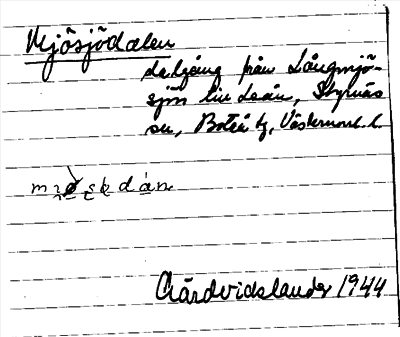 Mjösjödalen
dalgång från Långmjö-
sjön till Loån, Styrnäs
sn, Boteå tg, Västernorrl. l.
Gårdvidslander 1944